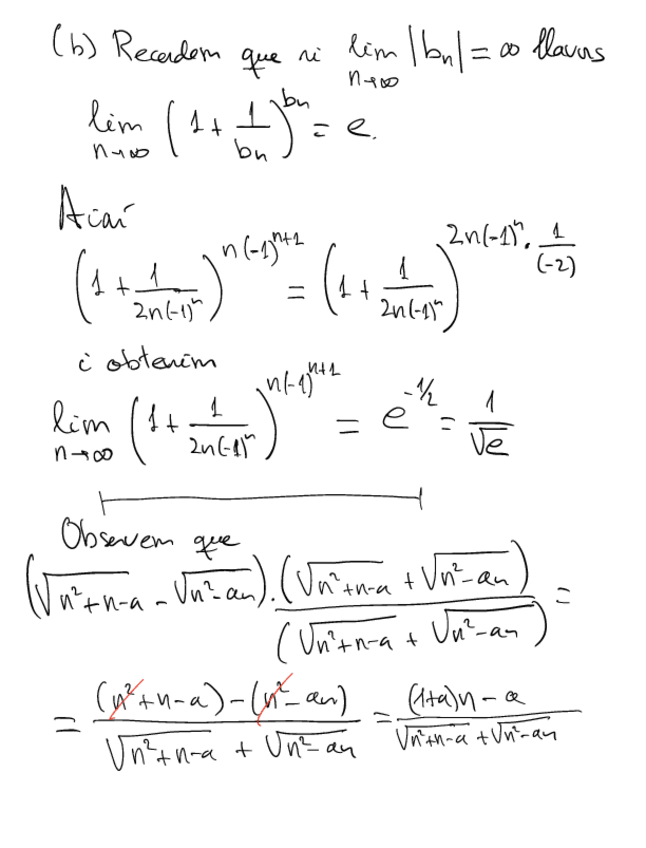 (b) Recordem que si lim_{n→∞} |b_n| = ∞ llavors
lim_{n→∞} (1 + 1/b_n)^{b_n} = e.
Així
(1 + 1/(2n(-1)^n))^{n(-1)^{n+1}} = (1 + 1/(2n(-1)^n))^{2n(-1)^n · 1/(-2)}
i obtenim
lim_{n→∞} (1 + 1/(2n(-1)^n))^{n(-1)^{n+1}} = e^{-1/2} = 1/√e
Observem que
(√(n²+n-a) - √(n²-an)) · (√(n²+n-a) + √(n²-an))/(√(n²+n-a) + √(n²-an)) =
= ((n²+n-a) - (n²-an))/(√(n²+n-a) + √(n²-an)) = ((1+a)n - a)/(√(n²+n-a) + √(n²-an))